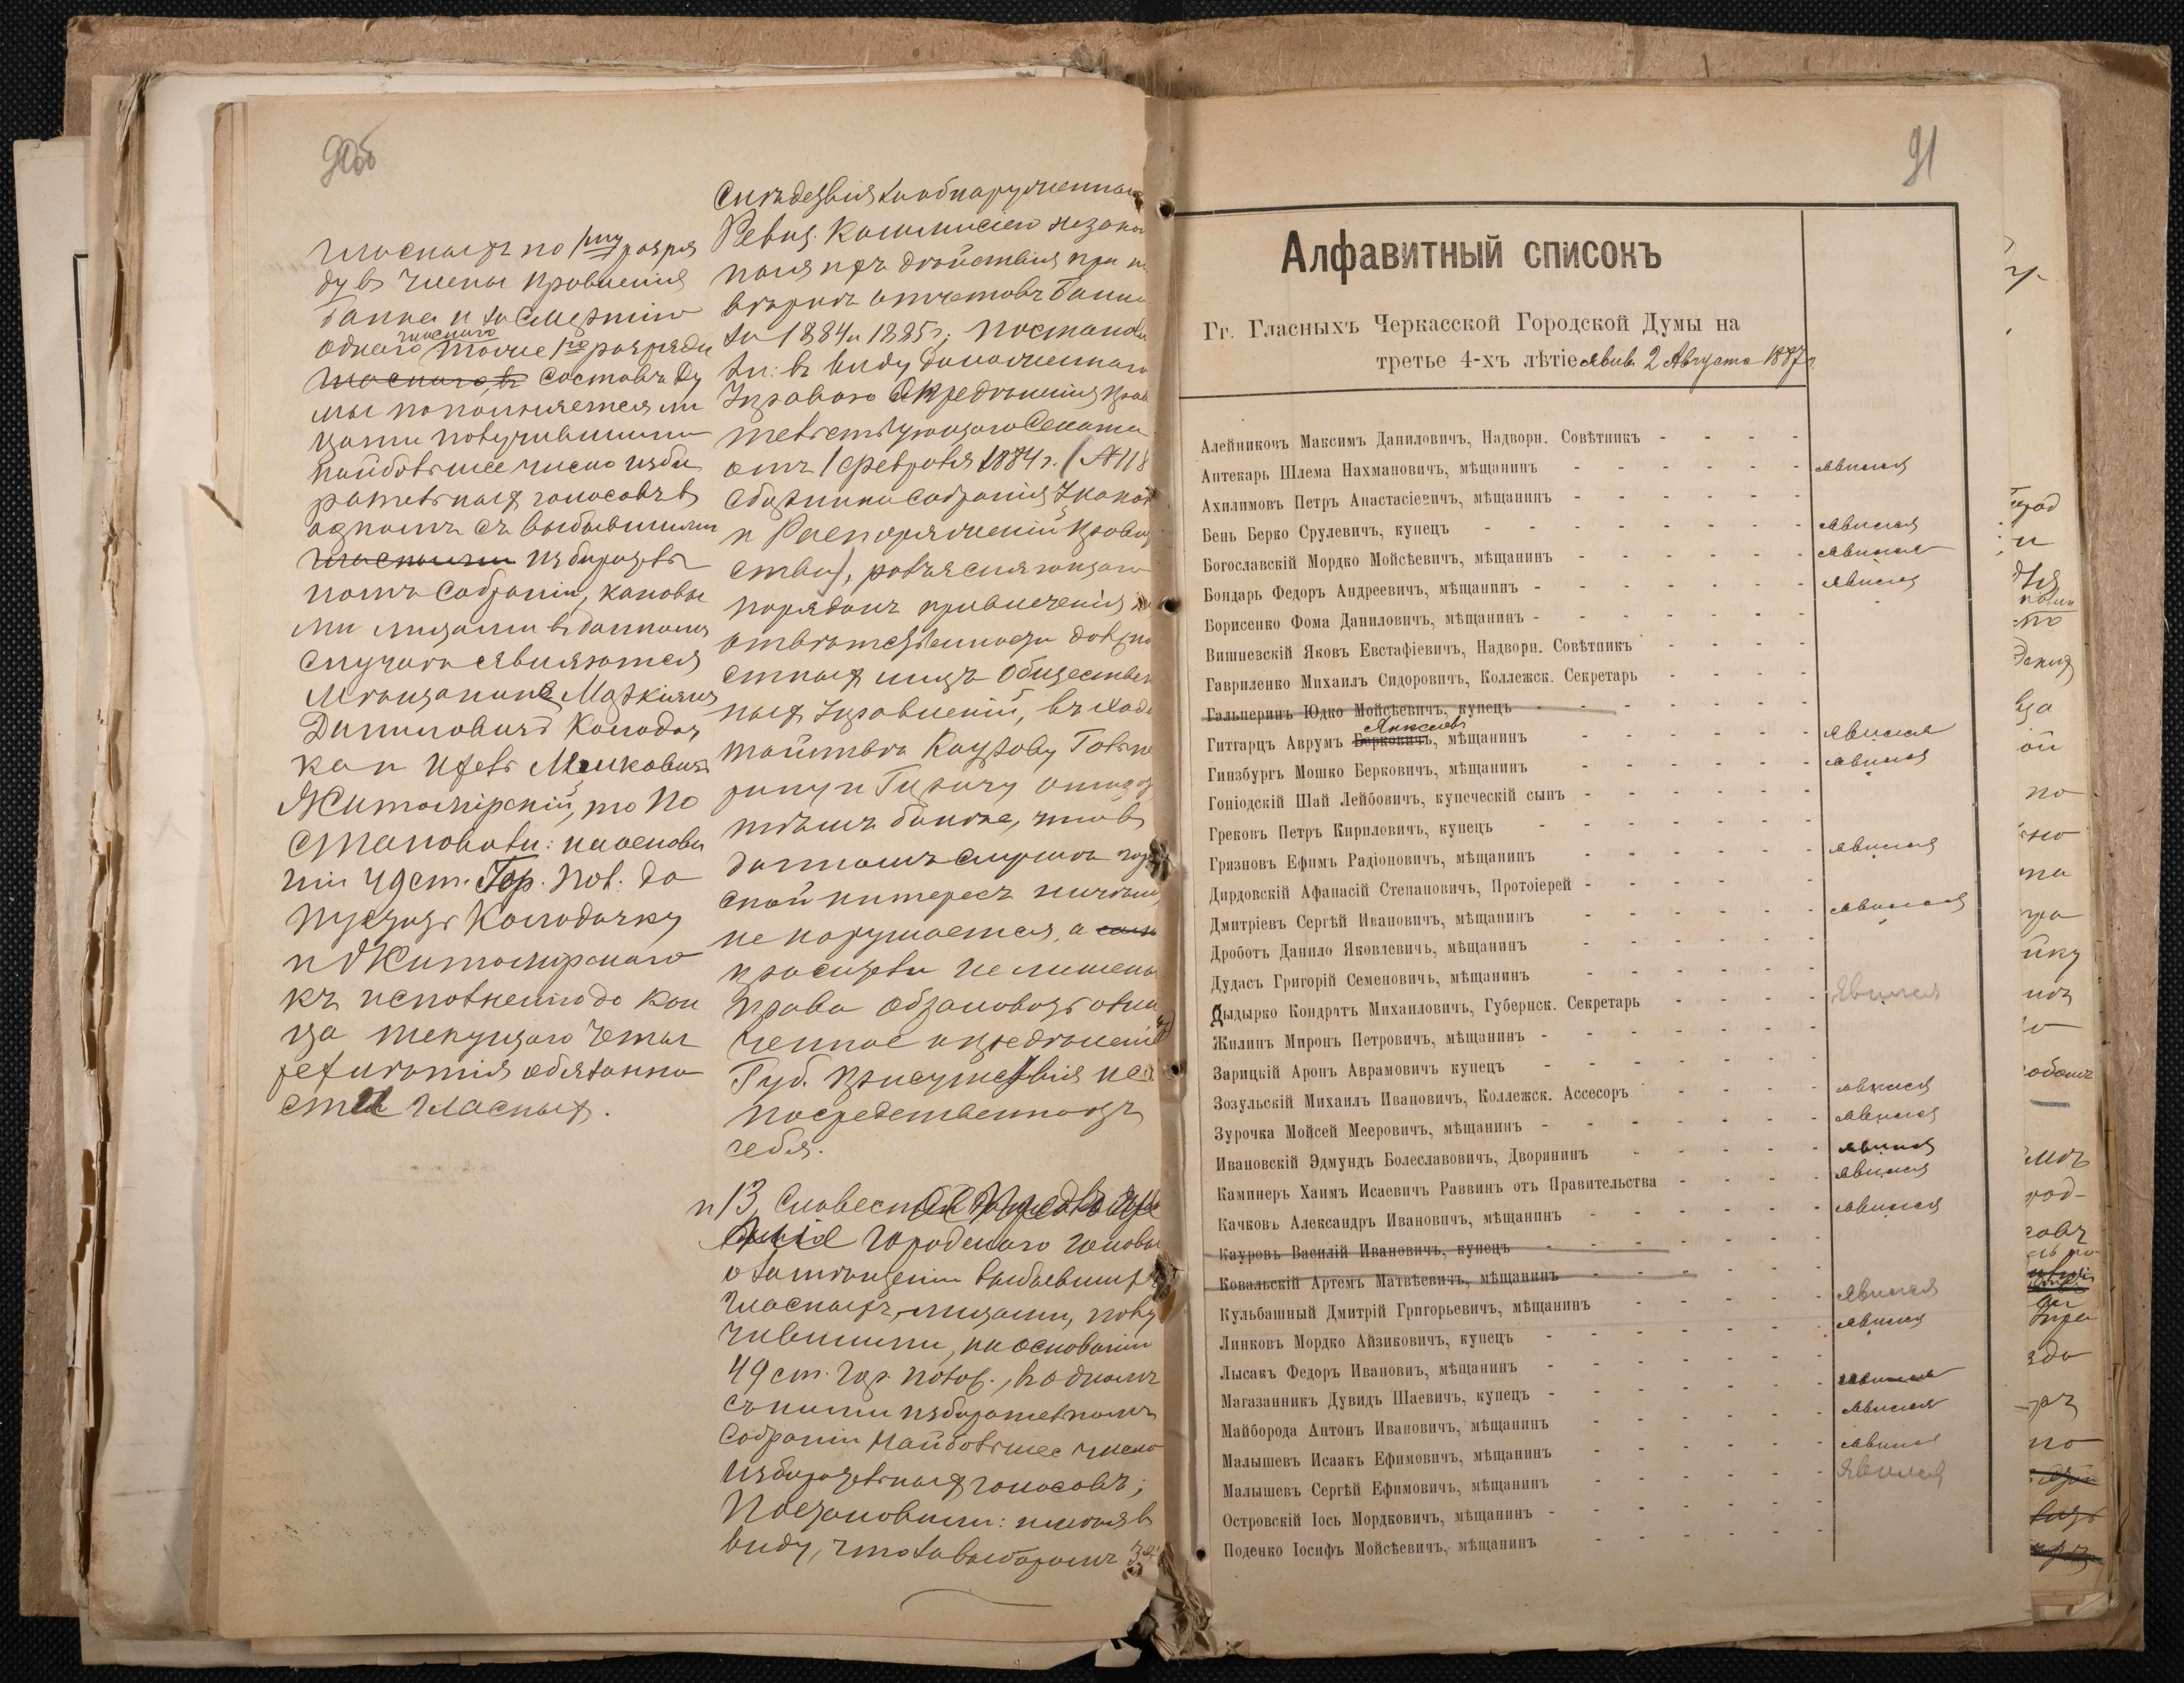 90об
гласныхъ по 1му разря
ду въ члены правленія
Банка и за смертію
одного гласного тоже 1го разряда
гласного, въ составъ Ду
мы пополняется ли
цами получившими
наибольшее число изби
рательныхъ голосовъ въ
одномъ съ выбывшими
гласными избиратель
номъ Собраніи, каковы
ми лицами въ данномъ
случаѣ являются
Мѣщанинъ
Даниловичъ Колодоч
ка и
Житомірскій, то по
становили: на основа
ніи 49 ст. Гор. Пол. до
пустить Колодочку
и Житомирскаго
къ исполненію до кон
ца текущаго четы
рехлѣтія обязанно
стей гласныхъ.
слѣдствія за обнаруженныя
Ревиз. Коммисіею незакон
ныя дѣйствія при по
вѣркѣ отчетовъ Банка
за 1884 и 1885 г; постанови
ли: въ виду
Указаго опредѣленія Прави
тельствующаго Сената
отъ 1 Февраля 1884 г. (№ 118
сборника собранія Узаконе
и Распоряженій Правитель
ства), разъясняющаго
порядокъ привлеченія къ
отвѣтственности должно
стныхъ лицъ Обществен
ныхъ Управленій, въ хода
тайствѣ Каурову, Гальпе
рину и отказа
тѣмъ болѣе, что въ
данномъ случаѣ город
ской интересъ ничѣмъ
не нарушается, а
просители не лишены
права обжаловать озна
ченное опредѣленіе
Губ. Присутствія не
посредственно отъ
себя.
и 13, Словесн
Городскаго головы
о замѣщеніи выбывшихъ
гласныхъ, лицами, полу
чившими, на основаніи
49 ст. Гор. Полож., въ одномъ
съ ними избирательномъ
Собраніи наибольшее число
избирательныхъ голосовъ;
Постановили: имѣя въ
виду, что за выборомъ 3хъ
91
Алфавитный списокъ
Гг. Гласныхъ Черкасской Городской Думы на
третье 4-хъ лѣтіе явив. 2 Августа 1887 г.
Алейниковъ Максимъ Даниловичъ, Надворн. Совѣтникъ - - - -
Аптекарь Шлема Нахмановичъ, мѣщанинъ - - - - - - явился
Ахилимовъ Петръ Анастасіевичъ, мѣщанинъ - - - - - -
Бень Берко Срулевичъ, купецъ - - - - - - - явился
Богославскій Мордко Мойсѣевичъ, мѣщанинъ - - - - - - явился
Бондарь Федоръ Андреевичъ, мѣщанинъ - - - - - - - явился
Борисенко Фома Даниловичъ, мѣщанинъ - - - - - - -
Вишневскій Яковъ Евстафіевичъ, Надворн. Совѣтникъ - - - -
Гавриленко Михаилъ Сидоровичъ, Коллежск. Секретарь - - - -
Гальперинъ Юдко Мойсѣевичъ, купецъ - - - - - - -
Гитгарцъ Аврумъ Берковичъ, мѣщанинъ - - - - - - явился
Гинзбургъ Мошко Берковичъ, мѣщанинъ - - - - - - явился
Гоніодскій Шай Лейбовичъ, купеческій сынъ - - - - - -
Грековъ Петръ Кириловичъ, купецъ - - - - - - -
Грязновъ Ефимъ Радіоновичъ, мѣщанинъ - - - - - - явился
Дирдовскій Афанасій Степановичъ, Протоіерей - - - - - -
Дмитріевъ Сергѣй Ивановичъ, мѣщанинъ - - - - - - явился
Дроботъ Данило Яковлевичъ, мѣщанинъ - - - - - -
Дудасъ Григорій Семеновичъ, мѣщанинъ - - - - - -
Дыдырко Кондратъ Михаиловичъ, Губернск. Секретарь - - - - явился
Жилинъ Миронъ Петровичъ, мѣщанинъ - - - - - - -
Зарицкій Аронъ Аврамовичъ купецъ - - - - - - -
Зозульскій Михаилъ Ивановичъ, Коллежск. Ассесоръ - - - - явился
Зурочка Мойсей Мееровичъ, мѣщанинъ - - - - - - - явился
Ивановскій Эдмундъ Болеславовичъ, Дворянинъ - - - - - явился
Каминеръ Хаимъ Исаевичъ Раввинъ отъ Правительства - - - - явился
Качковъ Александръ Ивановичъ, мѣщанинъ - - - - - - явился
Кауровъ Василій Ивановичъ, купецъ - - - - - - -
Ковальскій Артемъ Матвѣевичъ, мѣщанинъ - - - - - -
Кульбашный Дмитрій Григорьевичъ, мѣщанинъ - - - - - явился
Линковъ Мордко Айзиковичъ, купецъ - - - - - - - явился
Лысакъ Федоръ Ивановиъ, мѣщанинъ - - - - - - -
Магазанникъ Дувидъ Шаевичъ, купецъ - - - - - - - явился
Майборода Антонъ Ивановичъ, мѣщанинъ - - - - - - явился
Малышевъ Исаакъ Ефимовичъ, мѣщанинъ - - - - - - явился
Малышевъ Сергѣй Ефимовичъ, мѣщанинъ - - - - - - явился
Островскій Іось Мордковичъ, мѣщанинъ - - - - - - -
Поденко Іосифъ Мойсѣевичъ, мѣщанинъ - - - - - -